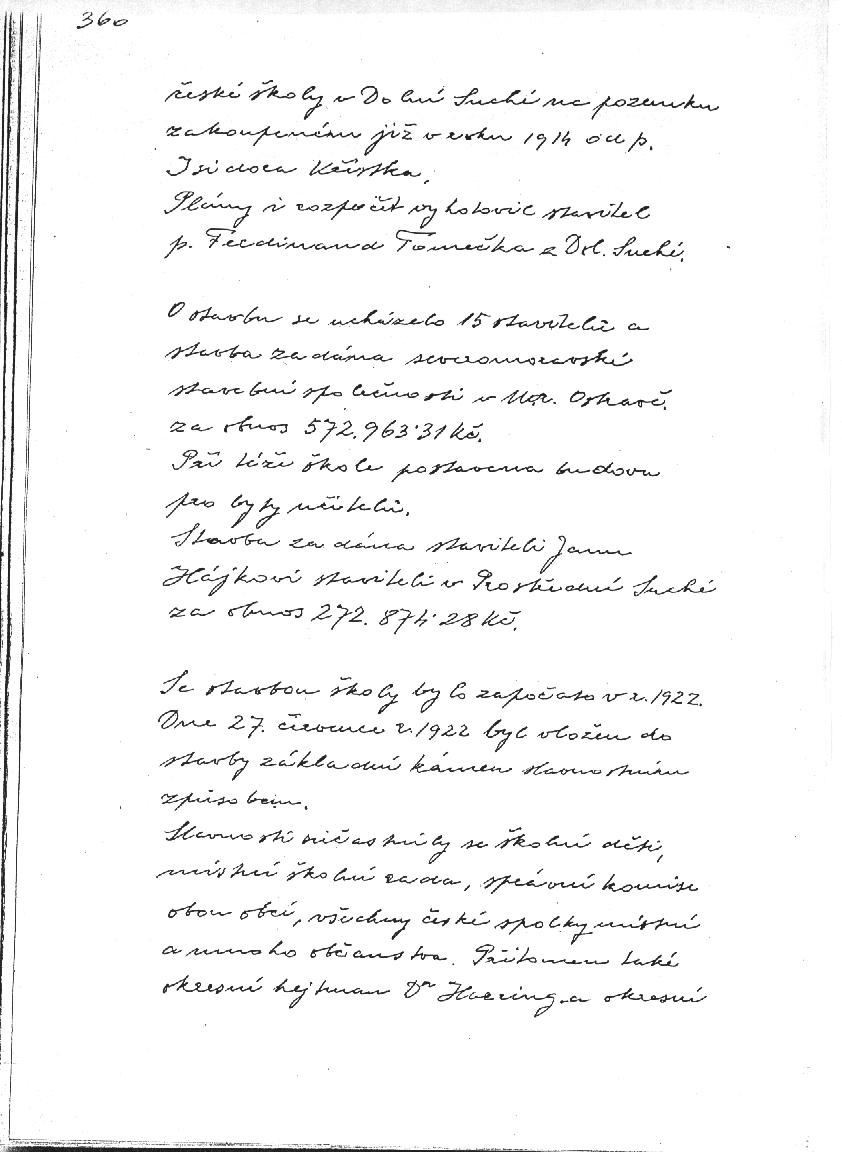 360
české školy v Dolní Suché na pozemku
zakoupeném již v roku 1914 od p.
Isidora Křístka.
Plány i rozpočít vyhotovil stavitel
p. Ferdinand Tomečka z Dol. Suché.
O stavbu se ucházelo 15 stavitelů a
stavba zadána severomoravské
stavební společnosti v Mor. Ostravě.
za obnos 572.963·31 Kč.
Při téže škole postavena budova
pro byty učitelů.
Stavba zadána staviteli Janu
Hájkovi staviteli v Prostřední Suché
za obnos 272.874·28 Kč.
Se stavbou školy bylo započato v r. 1922.
Dne 27. července r. 1922 byl vložen do
stavby základní kámen slavnostním
způsobem.
Slavnosti súčastnily se školní děti,
místní školní rada, správní komise
obou obcí, všechny české spolky místní
a mnoho občanstva. Přítomen také
okresní hejtman Dr Haering a okresní